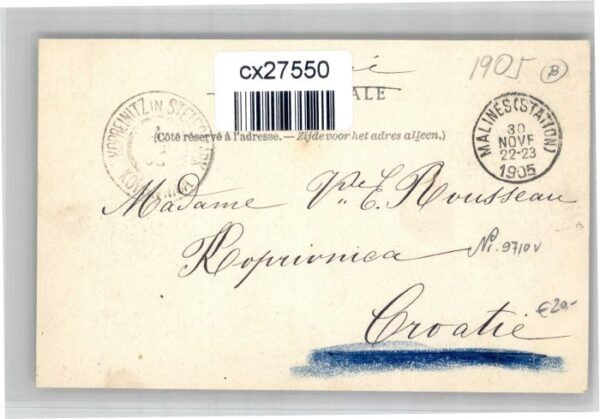 1905 B
cx27550
ALE
(Côté réservé à l'adresse. — Zijde voor het adres alleen.)
KOPREINITZ IN
MALINES (STATION)
30
NOVE
22-23
1905
Madame Vve E. Rousseau
Koprivnica
Nr. 9710v
€20,-
Croatie